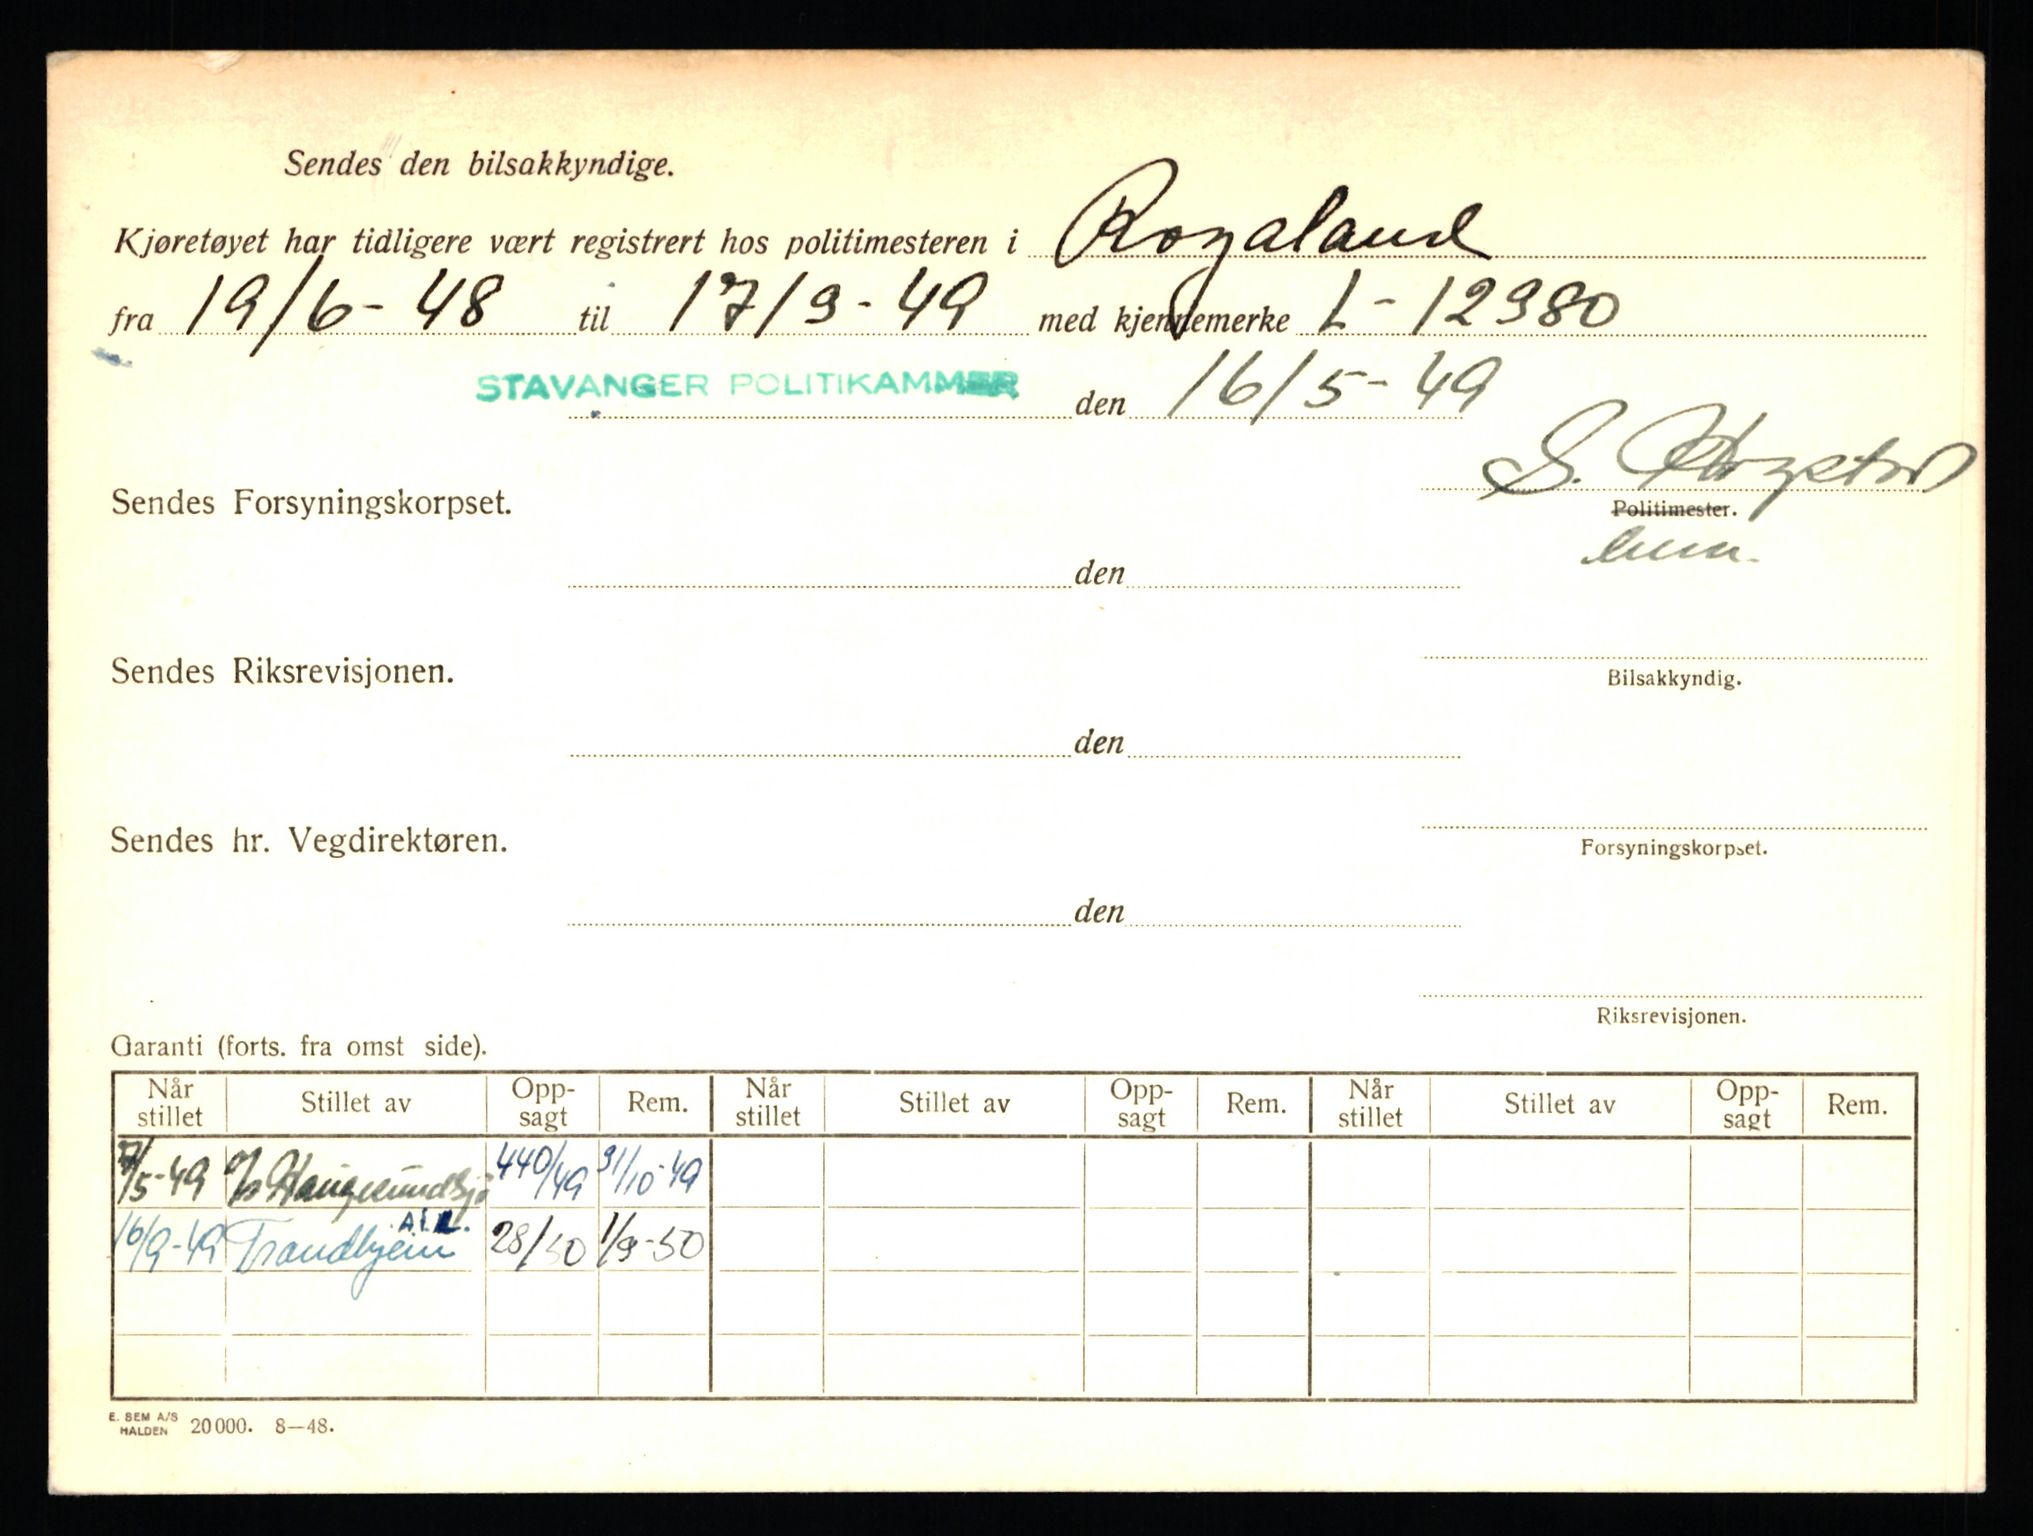 Sendes den bilsakkyndige.
Kjøretøyet har tidligere vært registrert hos politimesteren i Rogaland
fra 19/6-48 til 17/3-49 med kjennemerke L-12380
STAVANGER POLITIKAMMER den 16/5-49
S.
Sendes Forsyningskorpset.
Politimester.
den
Sendes Riksrevisjonen.
Bilsakkyndig.
den
Sendes hr. Vegdirektøren.
Forsyningskorpset.
den
Riksrevisjonen.
Garanti (forts. fra omst side).
Når stillet Stillet av Opp-sagt Rem. Når stillet Stillet av Opp-sagt Rem. Når stillet Stillet av Opp-sagt Rem.
7/5-49 A/S Haugesundsjø 440/49 31/10-49
16/9-49 Trondhjem 28/50 1/3-50
E. SEM A/S HALDEN 20000. 8—48.